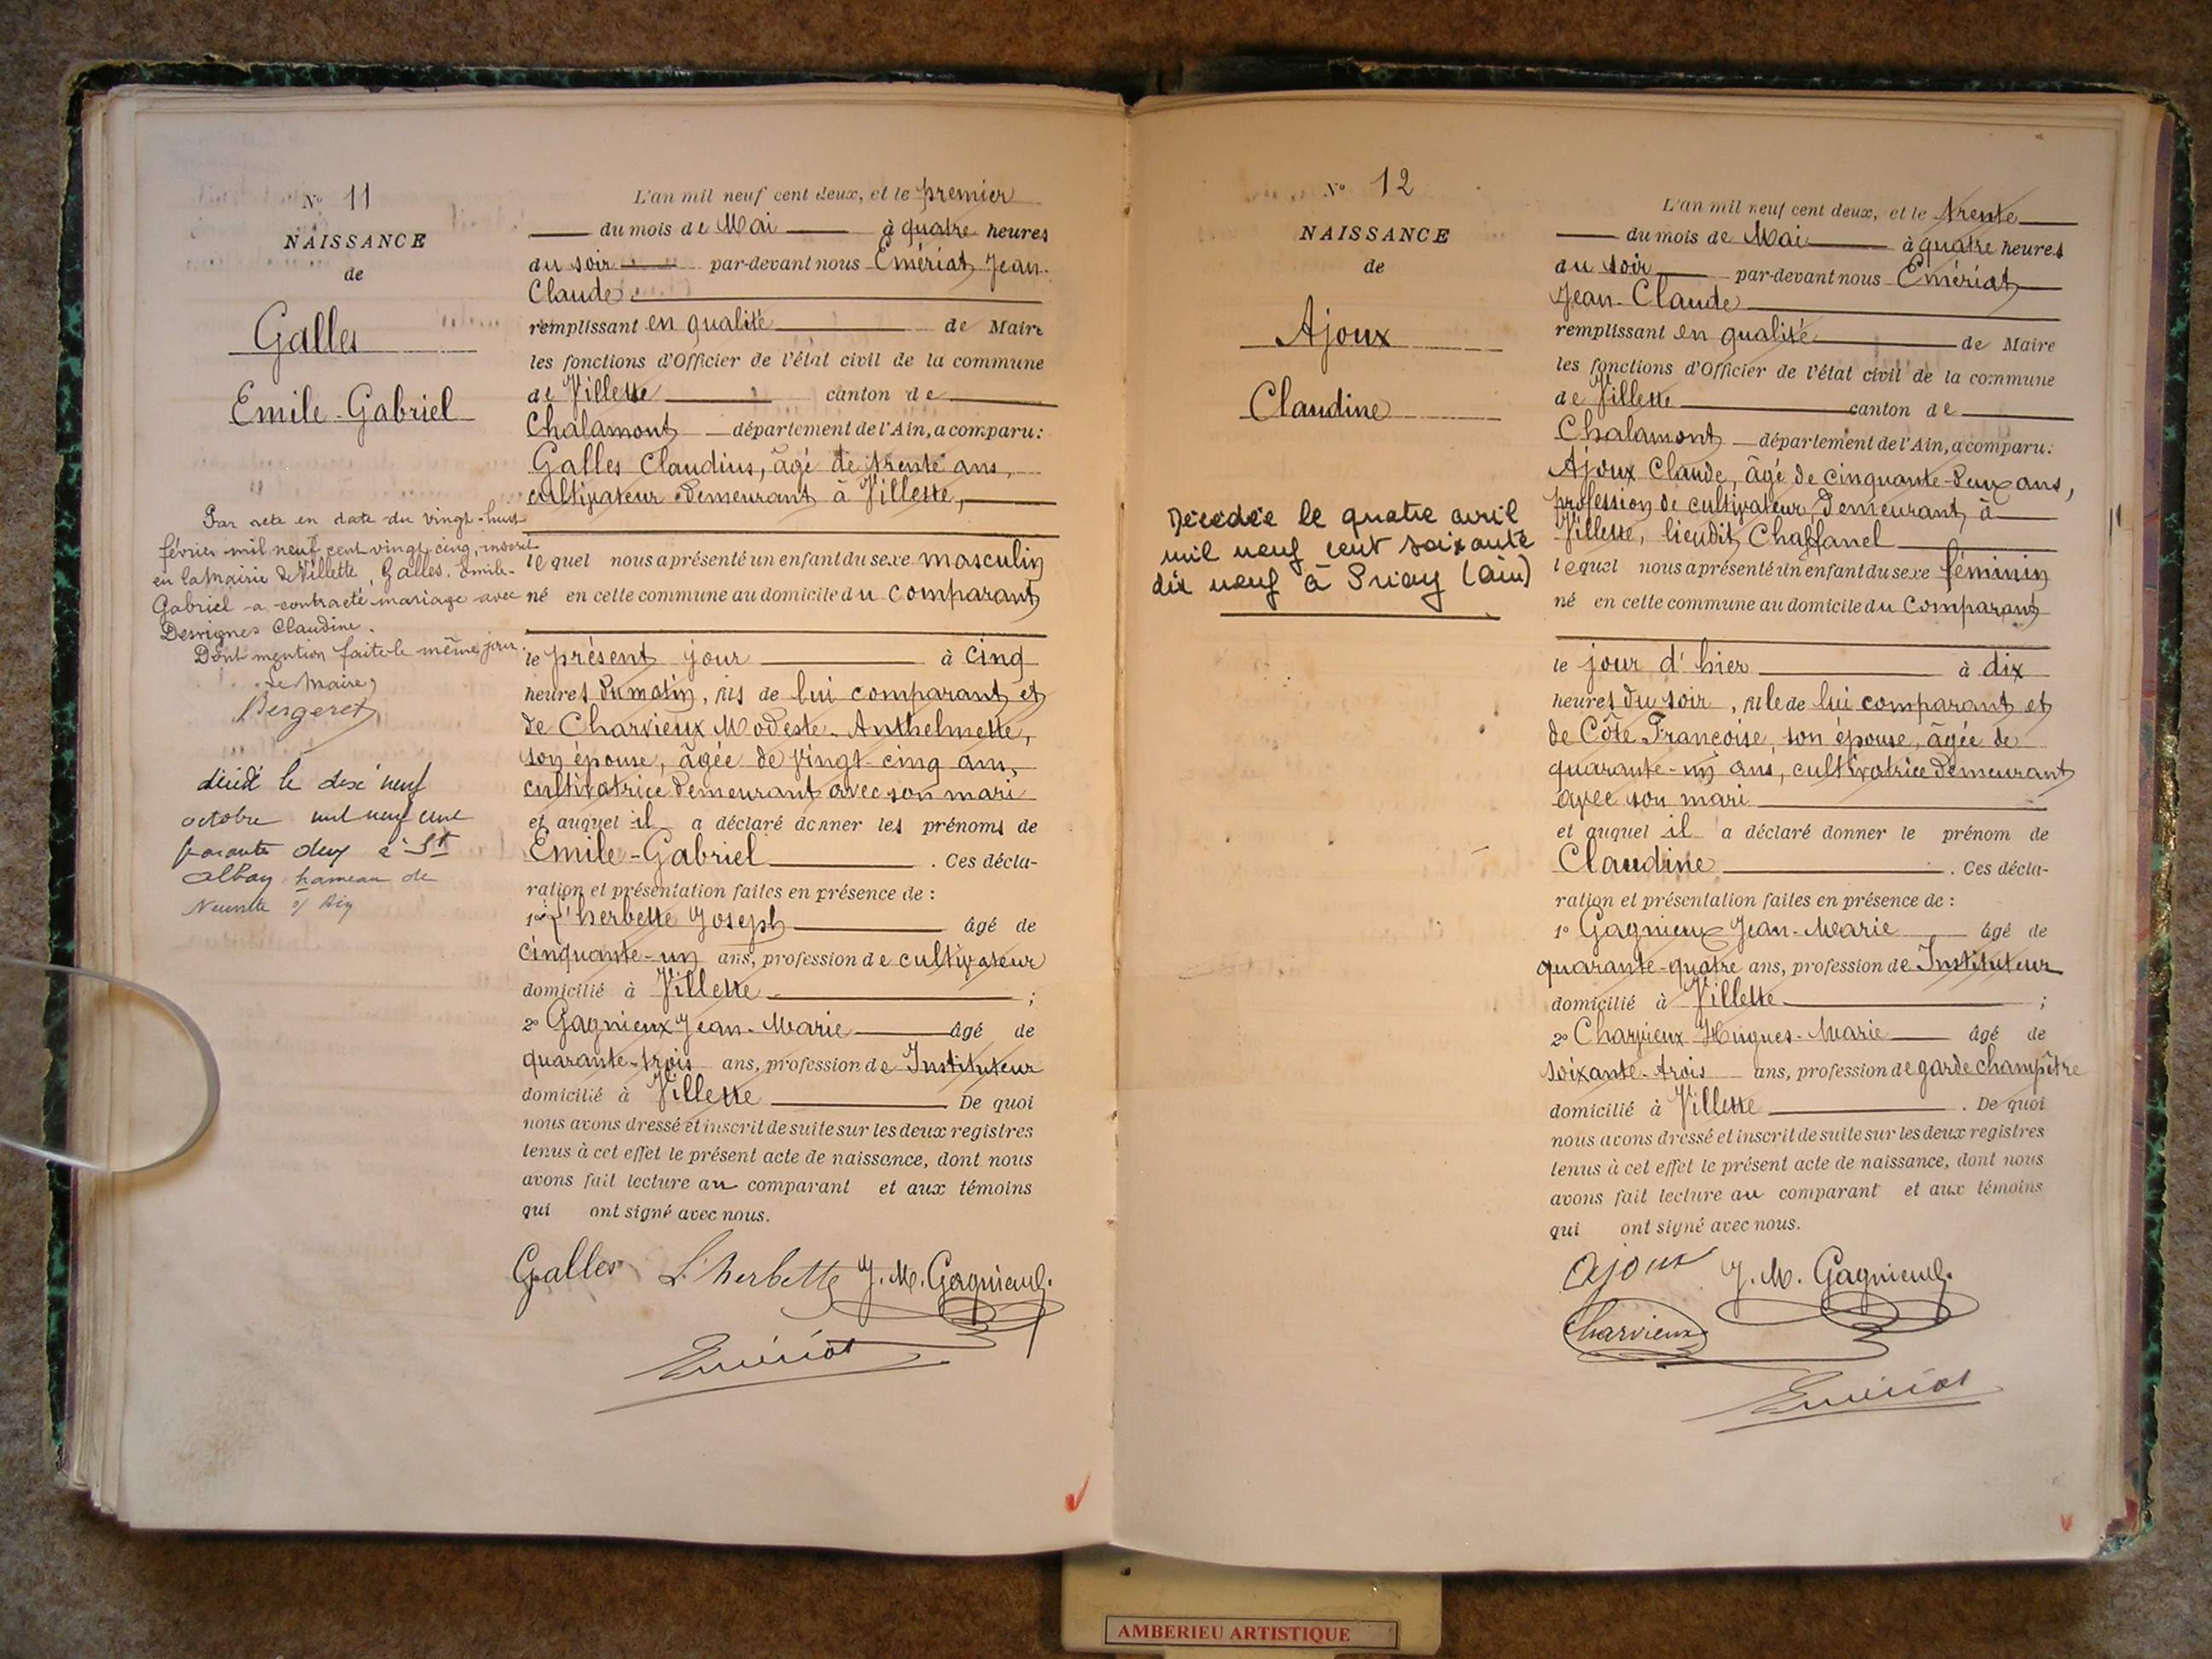 N° 11
NAISSANCE
de
Galles
Emile-Gabriel
Par acte en date du vingt-huit
février mil neuf cent vingt cinq, inscrit
en la Mairie de Villette, Galles, Emile-
Gabriel a contracté mariage avec
Desvignes Claudine.
Dont mention faite le même jour.
Le Maire,
Bergeret
décédé le dix neuf
octobre mil neuf cent
deux à St
hameau de
L'an mil neuf cent deux, et le premier
du mois de Mai à quatre heures
du soir par-devant nous Emériat Jean-
Claude
remplissant en qualité de Maire
les fonctions d'Officier de l'état civil de la commune
de Villette canton de
Chalamont département de l'Ain, a comparu:
Galles Claudius, âgé de trente ans,
cultivateur demeurant à Villette,
lequel nous a présenté un enfant du sexe masculin
né en cette commune au domicile du comparant
le présent jour à cinq
heures du matin, fils de lui comparant et
de Charvieux Modeste-Anthelmette,
son épouse, âgée de vingt-cinq ans,
cultivatrice demeurant avec son mari
et auquel il a déclaré donner les prénoms de
Emile-Gabriel. Ces décla-
ration et présentation faites en présence de :
1° L'herbette Joseph âgé de
cinquante-un ans, profession de cultivateur
domicilié à Villette ;
2° Gagnieux Jean-Marie âgé de
quarante-trois ans, profession de Instituteur
domicilié à Villette De quoi
nous avons dressé et inscrit de suite sur les deux registres
tenus à cet effet le présent acte de naissance, dont nous
avons fait lecture au comparant et aux témoins
qui ont signé avec nous.
Galles L'herbette J. M. Gagnieux
Emériat
N° 12
NAISSANCE
de
Ajoux
Claudine
Décédée le quatre avril
mil neuf cent soixante
dix neuf à Priay (Ain)
L'an mil neuf cent deux, et le trente
du mois de Mai à quatre heures
du soir par-devant nous Emériat
Jean-Claude
remplissant en qualité de Maire
les fonctions d'Officier de l'état civil de la commune
de Villette canton de
Chalamont département de l'Ain, a comparu:
Ajoux Claude, âgé de cinquante-deux ans,
profession de cultivateur demeurant à
Villette, lieudit Chaffanel
lequel nous a présenté un enfant du sexe féminin
né en cette commune au domicile du comparant
le jour d'hier à dix
heures du soir, fille de lui comparant et
de Côte Françoise, son épouse, âgée de
quarante-un ans, cultivatrice demeurant
avec son mari
et auquel il a déclaré donner le prénom de
Claudine. Ces décla-
ration et présentation faites en présence de :
1° Gagnieux Jean-Marie âgé de
quarante-quatre ans, profession de Instituteur
domicilié à Villette ;
2° Charvieux Hugues-Marie âgé de
soixante-trois ans, profession de garde champêtre
domicilié à Villette. De quoi
nous avons dressé et inscrit de suite sur les deux registres
tenus à cet effet le présent acte de naissance, dont nous
avons fait lecture au comparant et aux témoins
qui ont signé avec nous.
Ajoux J. M. Gagnieux
Charvieux
Emériat
AMBERIEU ARTISTIQUE